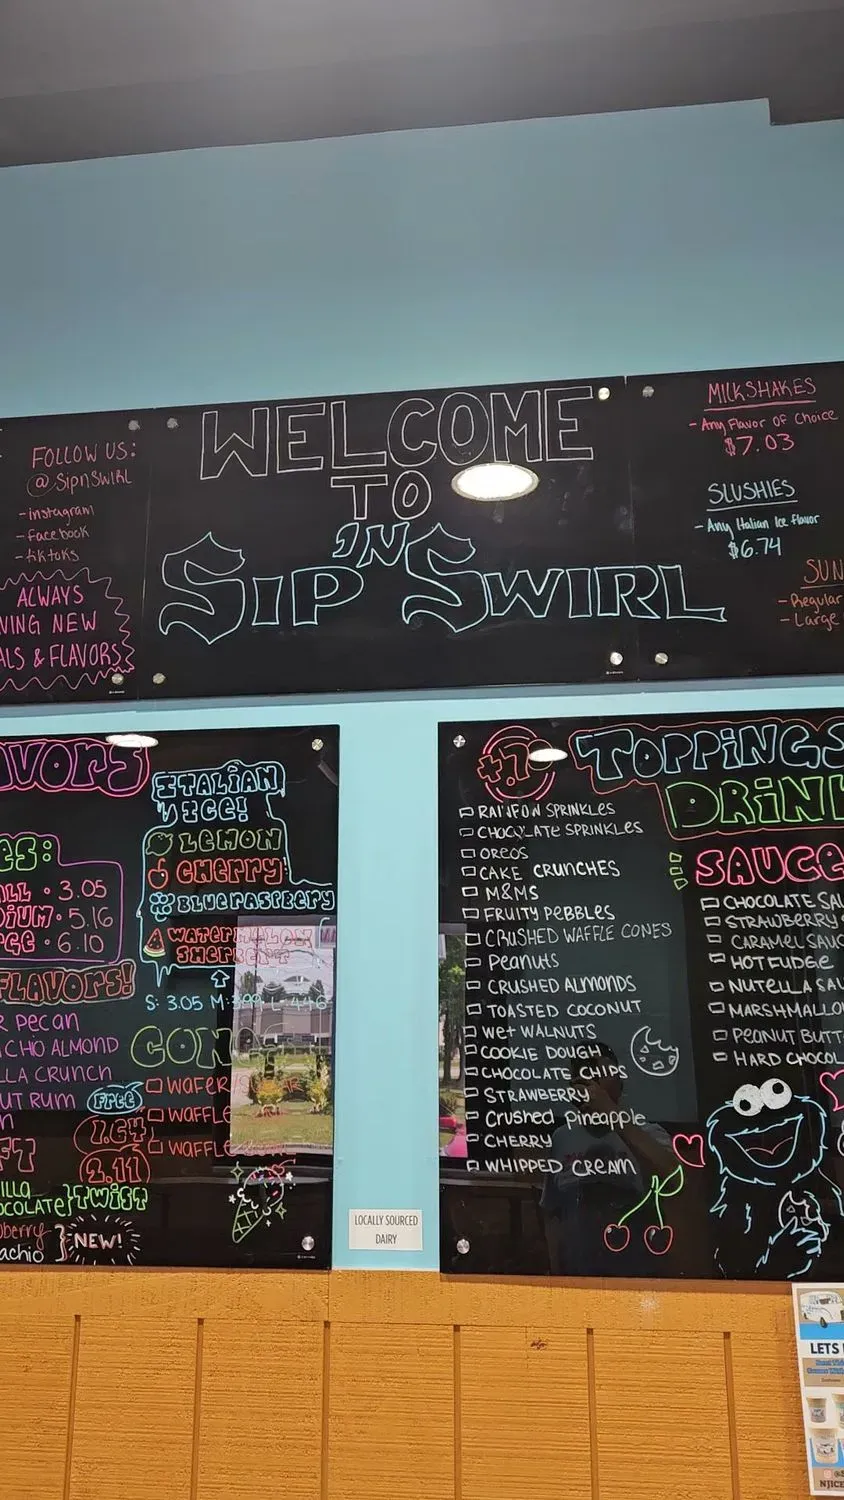 FOLLOW US:
@SipnSwirl
-instagram
-Facebook
-tiktoks
ALWAYS
VING NEW
ALS & FLAVORS
WELCOME
TO
SIP 'N SWIRL
MILKSHAKES
- Any Flavor of Choice
$7.03
SLUSHIES
- Any Italian Ice flavor
$6.74
SUN
- Regular
- Large
AVORS
ES:
ALL • 3.05
DIUM • 5.16
GE • 6.10
FLAVORS!
R Pecan
CHIO ALMOND
LLA CRUNCH
UT RUM
n
FT
ILLA
OCOLATE } TWIST
berry
achio } NEW!
ITALIAN
ICE!
LEMON
CHERRY
BLUE RASPBERRY
WATERMELON
SHERBERT
S: 3.05 M: 3.99 L- 4.46
CON
FREE
WAFER
1.64
WAFFLE
2.11
WAFFLE
LOCALLY SOURCED
DAIRY
TOPPINGS
DRIN
RAINBOW SPRINKLES
CHOCOLATE SPRINKLES
OREOS
CAKE CRUNCHES
M&MS
FRUITY PEBBLES
CRUSHED WAFFLE CONES
Peanuts
CRUSHED ALMONDS
TOASTED COCONUT
Wet WALNUTS
COOKIE DOUGH
CHOCOLATE CHIPS
STRAWBERRY
Crushed Pineapple
CHERRY
WHIPPED CREAM
SAUCE
CHOCOLATE SAU
STRAWBERRY S
CARAMEL SAUC
HOT FUDGE
NUTELLA SAU
MARSHMALLO
PEANUT BUTT
HARD CHOCOL
LETS
NJICE